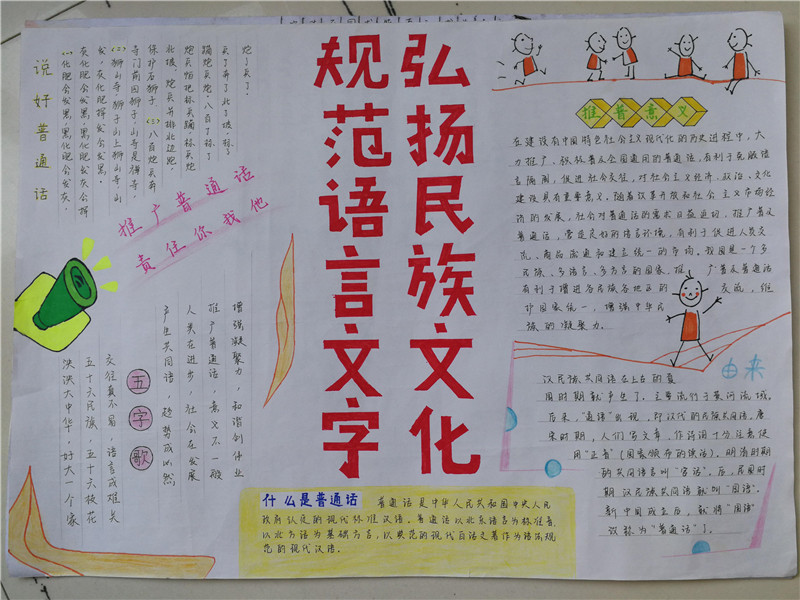 弘扬民族文化
规范语言文字
说好普通话
(一)化肥会发黑，黑化肥会发灰，
灰化肥会发黑，黑化肥发灰会挥
发，灰化肥挥发会发黑。
(二)狮山寺，狮子山上狮山寺，山
寺门前四狮子，山寺是禅寺，
保护石狮子。(三)八百
推广普通话
责任你我他
五字歌
泱泱大中华，好大一个家
五十六民族，五十六枝花
交往真不易，语言成难关
产生共同语，趋势成必然
人类在进步，社会在发展
推广普通话，意义不一般
增强凝聚力，和谐创伟业
什么是普通话
普通话是中华人民共和国中央人民
政府认定的现代标准汉语。普通话以北京语音为标准音，
以北方话为基础方言，以典范的现代白话文著作为语法规
范的现代汉语。
推普意义
在建设有中国特色社会主义现代化的历史进程中，大
力推广、积极普及全国通用的普通话，有利于克服语
言隔阂，促进社会交往，对社会主义经济、政治、文化
建设具有重要意义。随着改革开放和社会主义市场经
济的发展，社会对普通话的需求日益迫切，推广普及
普通话，营造良好的语言环境，有利于促进人员交
流、商品流通和建立统一的市场。我国是一个多
民族、多语言、多方言的国家，推广普及普通话
有利于增进各民族各地区的交流，维
护国家统一，增强中华民
族的凝聚力。
由来
汉民族共同语在上古的夏
周时期就产生了，主要流行于黄河流域。
后来，"通语"出现，即汉代的民族共同语。唐
宋时期，人们写文章、作诗词十分注意使
用"正音"（国家颁布的读法）。明清时期
的共同语言叫"官话"。后，民国时
期汉民族共同语就叫"国语"。
新中国成立后，就将"国语"
改称为"普通话"了。